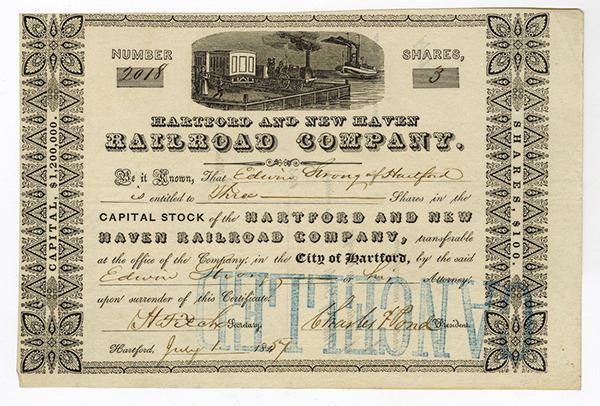 NUMBER
2018
SHARES,
3
HARTFORD AND NEW HAVEN
RAILROAD COMPANY.
Be it Known, That Edwin Strong of Hartford
is entitled to Three Shares in the
CAPITAL STOCK of the HARTFORD AND NEW
HAVEN RAILROAD COMPANY, transferable
at the office of the Company, in the City of Hartford, by the said
Edwin Strong or his Attorney,
upon surrender of this Certificate.
Secretary. Charles F Pond President.
Hartford, July 1 1847
CAPITAL, $1,200,000.
SHARES, $100.
CANCELLED